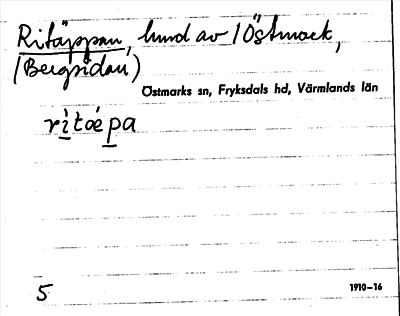 Ritäppan, hund av 1 Östmark,
(Bergsidan)
Östmarks sn, Fryksdals hd, Värmlands län
rìtǽpa
5
1910–16